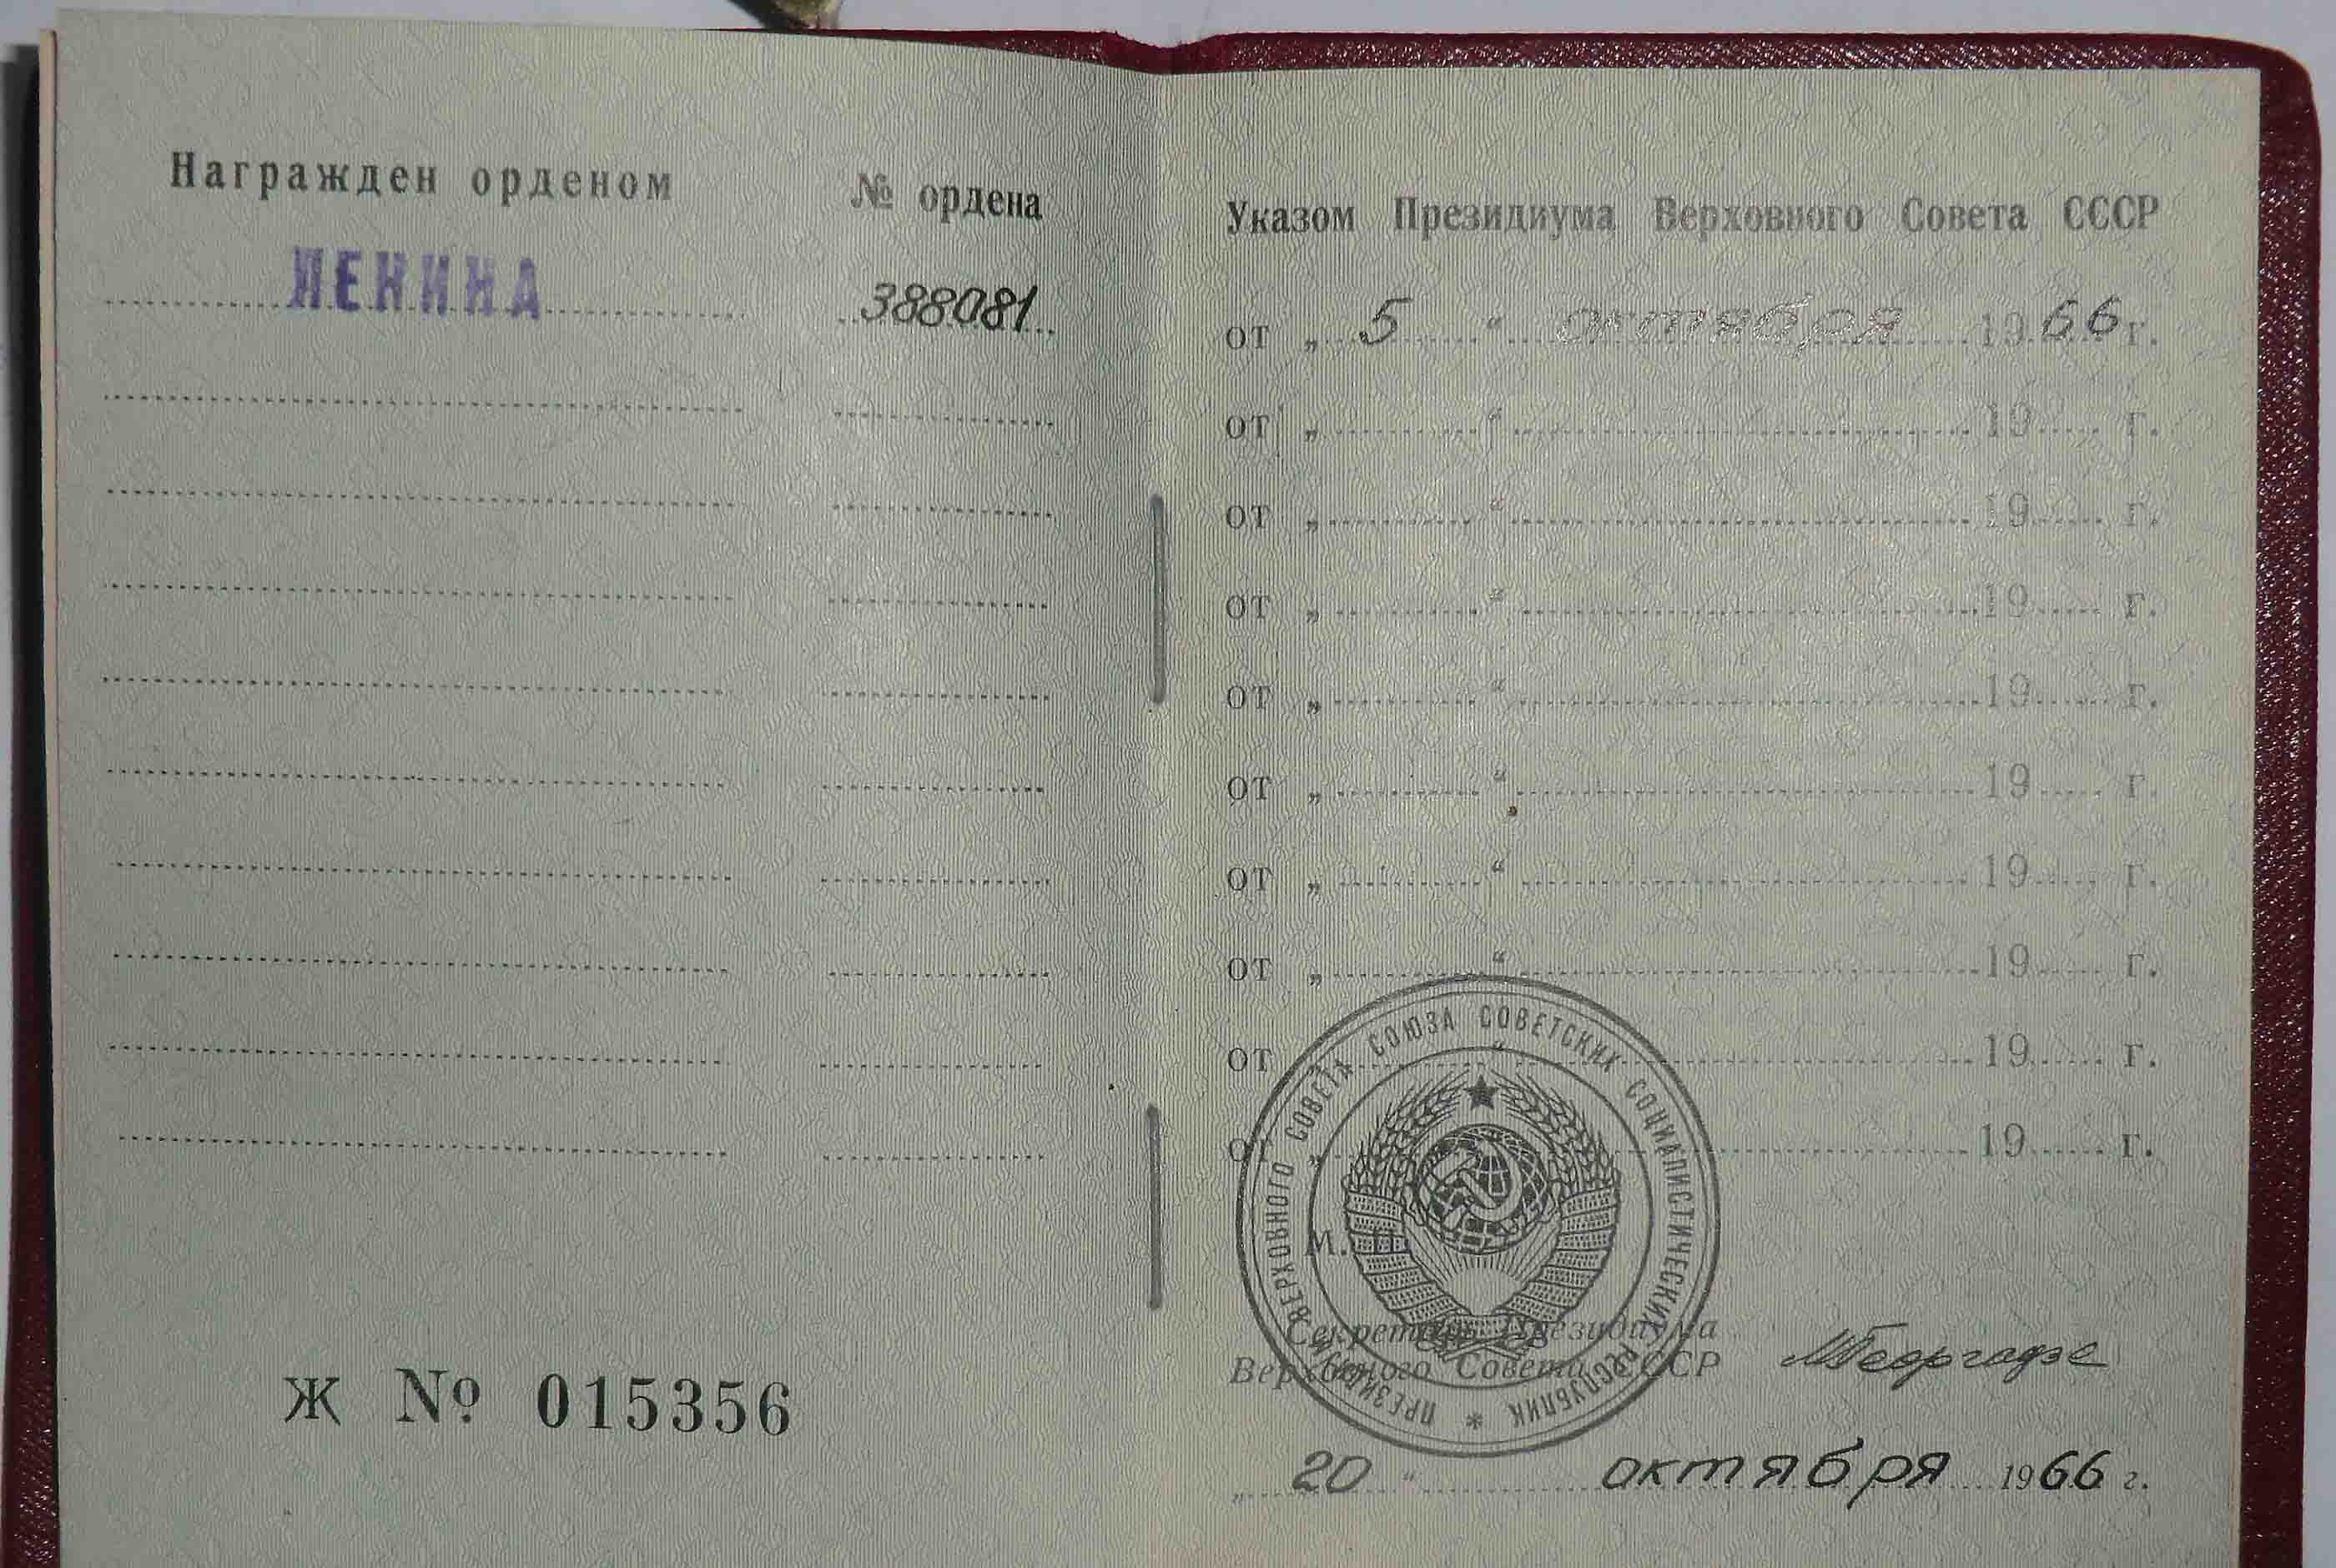 Награжден орденом № ордена
ЛЕНИНА 388081
Ж № 015356
Указом Президиума Верховного Совета СССР
от „ 5 “ октября 1966 г.
от „ “ 19 г.
от „ “ 19 г.
от „ “ 19 г.
от „ “ 19 г.
от „ “ 19 г.
от „ “ 19 г.
от „ “ 19 г.
от “ 19 г.
от „ 19 г.
ПРЕЗИДИУМ ВЕРХОВНОГО СОВЕТА СОЮЗА СОВЕТСКИХ СОЦИАЛИСТИЧЕСКИХ РЕСПУБЛИК *
М. П.
Секретарь Президиума
Верховного Совета СССР МГеоргадзе
„ 20 “ октября 1966 г.